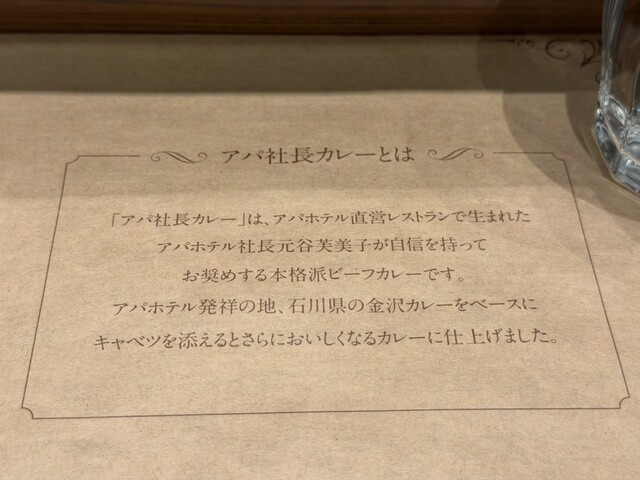 アパ社長カレーとは
「アパ社長カレー」は、アパホテル直営レストランで生まれた
アパホテル社長元谷芙美子が自信を持って
お奨めする本格派ビーフカレーです。
アパホテル発祥の地、石川県の金沢カレーをベースに
キャベツを添えるとさらにおいしくなるカレーに仕上げました。